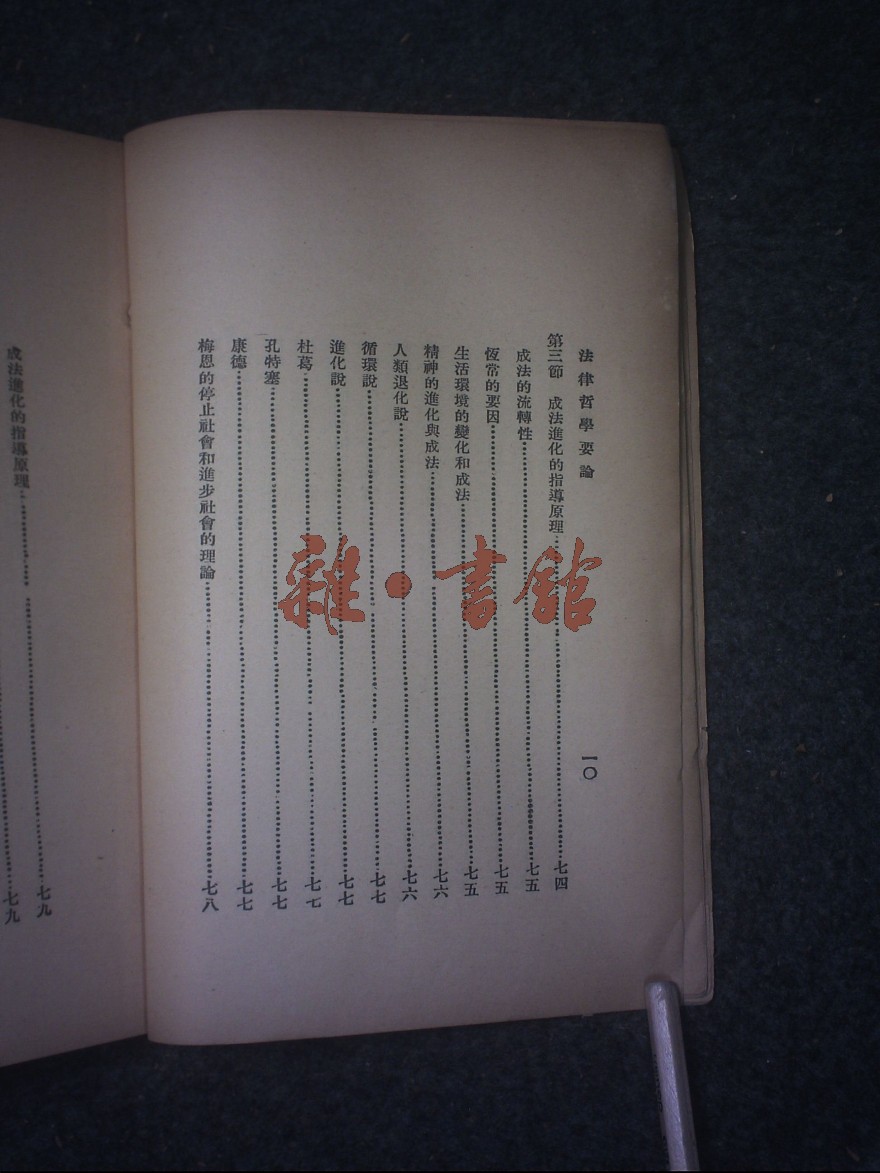 法律哲學要論
一〇
第三節 成法進化的指導原理……七四
成法的流轉性……七五
恆常的要因……七五
生活環境的變化和成法……七五
精神的進化與成法……七六
人類退化說……七六
循環說……七七
進化說……七七
杜葛……七七
孔特塞……七七
康德……七七
梅恩的停止社會和進步社會的理論……七八
……七九
成法進化的指導原理……七九
雜·書館